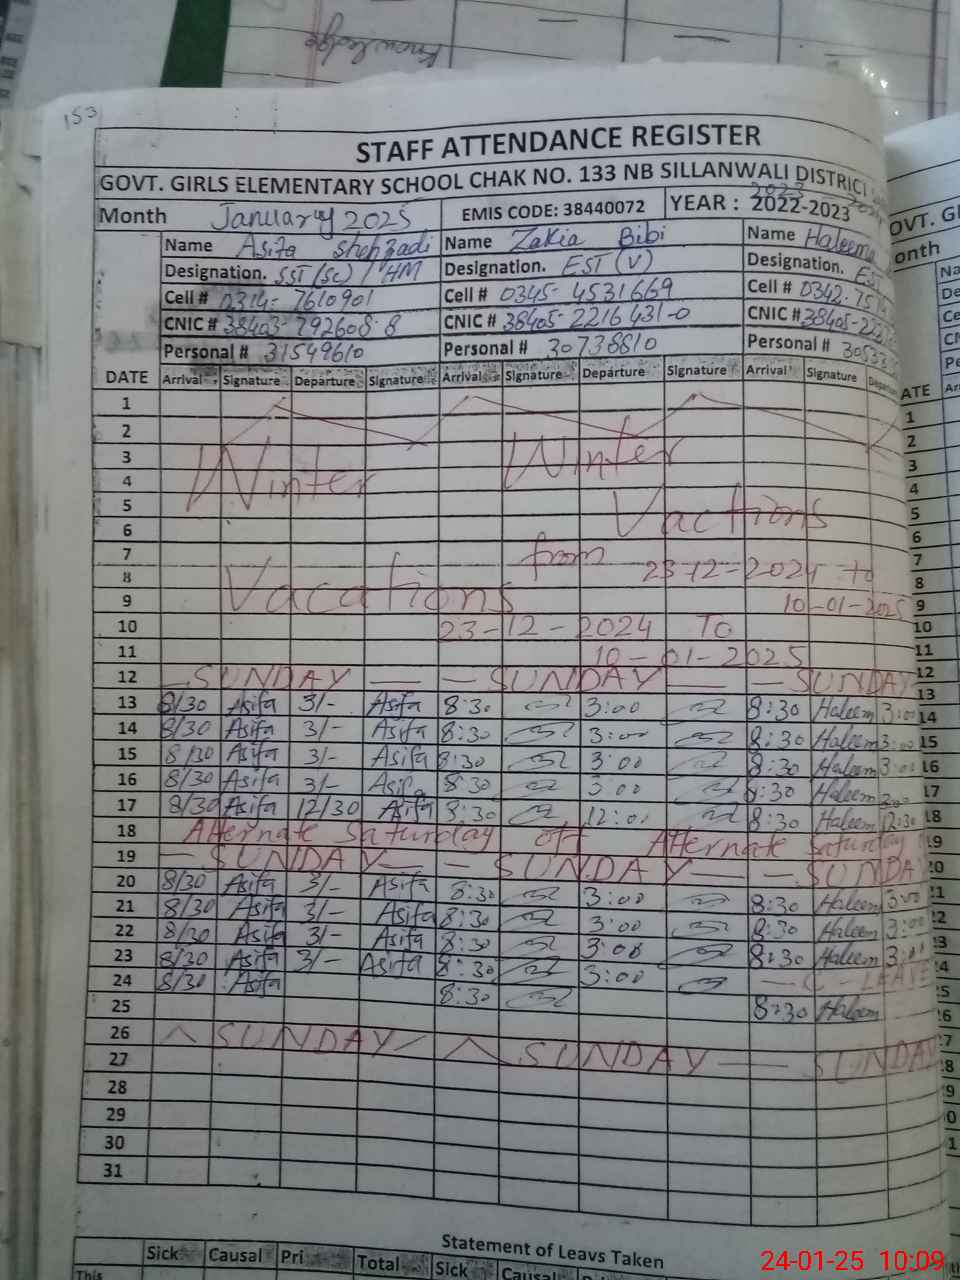 Knowledge
153
STAFF ATTENDANCE REGISTER
GOVT. GIRLS ELEMENTARY SCHOOL CHAK NO. 133 NB SILLANWALI DISTRICT
Month January 2025 EMIS CODE: 38440072 YEAR : 2022-2023
2023
Name Asifa Shehzadi Name Zakia Bibi Name Haleema
Designation. SST (SC) / HM Designation. EST (V) Designation. ES
Cell # 0314- 7610901 Cell # 0345- 4531669 Cell # 0342-75
CNIC # 38403-792608-8 CNIC # 38405-2216431-0 CNIC # 38405-22
Personal # 31549610 Personal # 30738810 Personal # 3053
DATE Arrival Signature Departure Signature Arrival Signature Departure Signature Arrival Signature Departure
1
2
3 Winter Winter
4
5 Vactions
6
7 from
8 Vacations 23-12-2024 to
9 10-01-2025
10 23-12-2024 TO
11 10-01-2025
12 SUNDAY SUNDAY SUNDAY
13 8/30 Asifa 3/- Asifa 8:30 3:00 8:30 Haleem 3:00
14 8/30 Asifa 3/- Asifa 8:30 3:00 8:30 Haleem 3:00
15 8/30 Asifa 3/- Asifa 8:30 3:00 8:30 Haleem 3:00
16 8/30 Asifa 3/- Asifa 8:30 3:00 8:30 Haleem 3:00
17 8/30 Asifa 12/30 Asifa 8:30 8:30 Haleem 12:30
18 Alternate Saturday off Alternate Saturday
19 SUNDAY SUNDAY SUNDAY
20 8/30 Asifa 3/- Asifa 8:30 3:00 8:30 Haleem 3:00
21 8/30 Asifa 3/- Asifa 8:30 3:00 8:30 Haleem 3:00
22 8/30 Asifa 3/- Asifa 8:30 3:00 8:30 Haleem 3:00
23 8/30 Asifa 3/- Asifa 8:30 3:00 C-LEAVE
24 8/30 Asifa 8:30 8:30 Haleem
25
26 SUNDAY SUNDAY SUNDAY
27
28
29
30
31
Statement of Leavs Taken
Sick Causal Pri Total Sick Causal
This
24-01-25 10:09